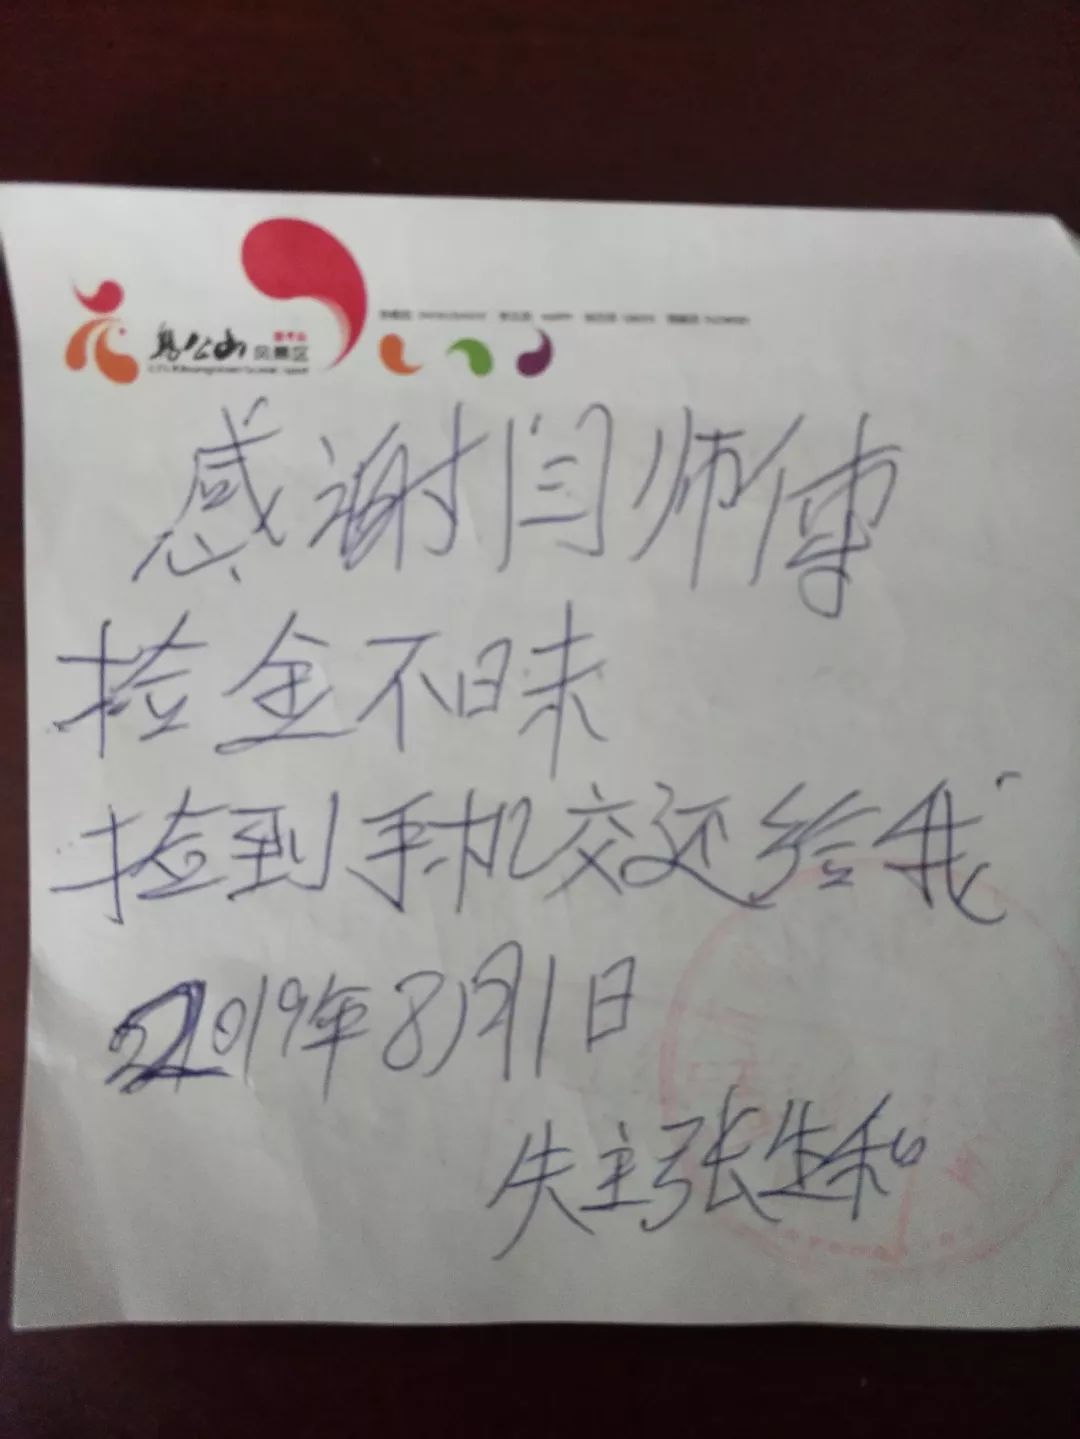 乌金山
风景区
感谢闫师傅
捡金不昧
捡到手机交还给我
2019年8月1日
失主张生和